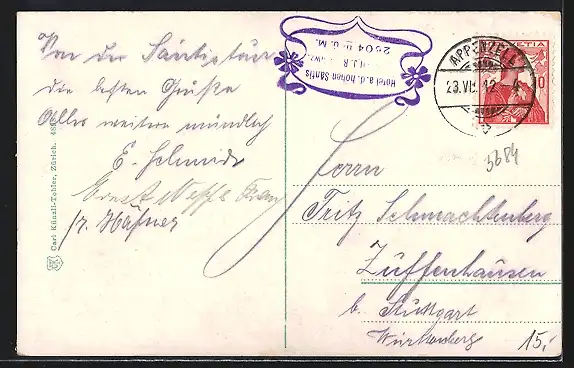 Von der Säntistour
die besten Grüße
Alles weitere mündlich
E. Schmidt
Ernst
Fr. Häfner
Carl Künzli-Tobler, Zürich.
Hotel a. d. hohen Säntis
2504 m ü. M.
APPENZELL
23.VII.12
HELVETIA
10
3684
Herrn
Fritz Schmachtenberg
Zuffenhausen
b. Stuttgart
Württemberg
15,-